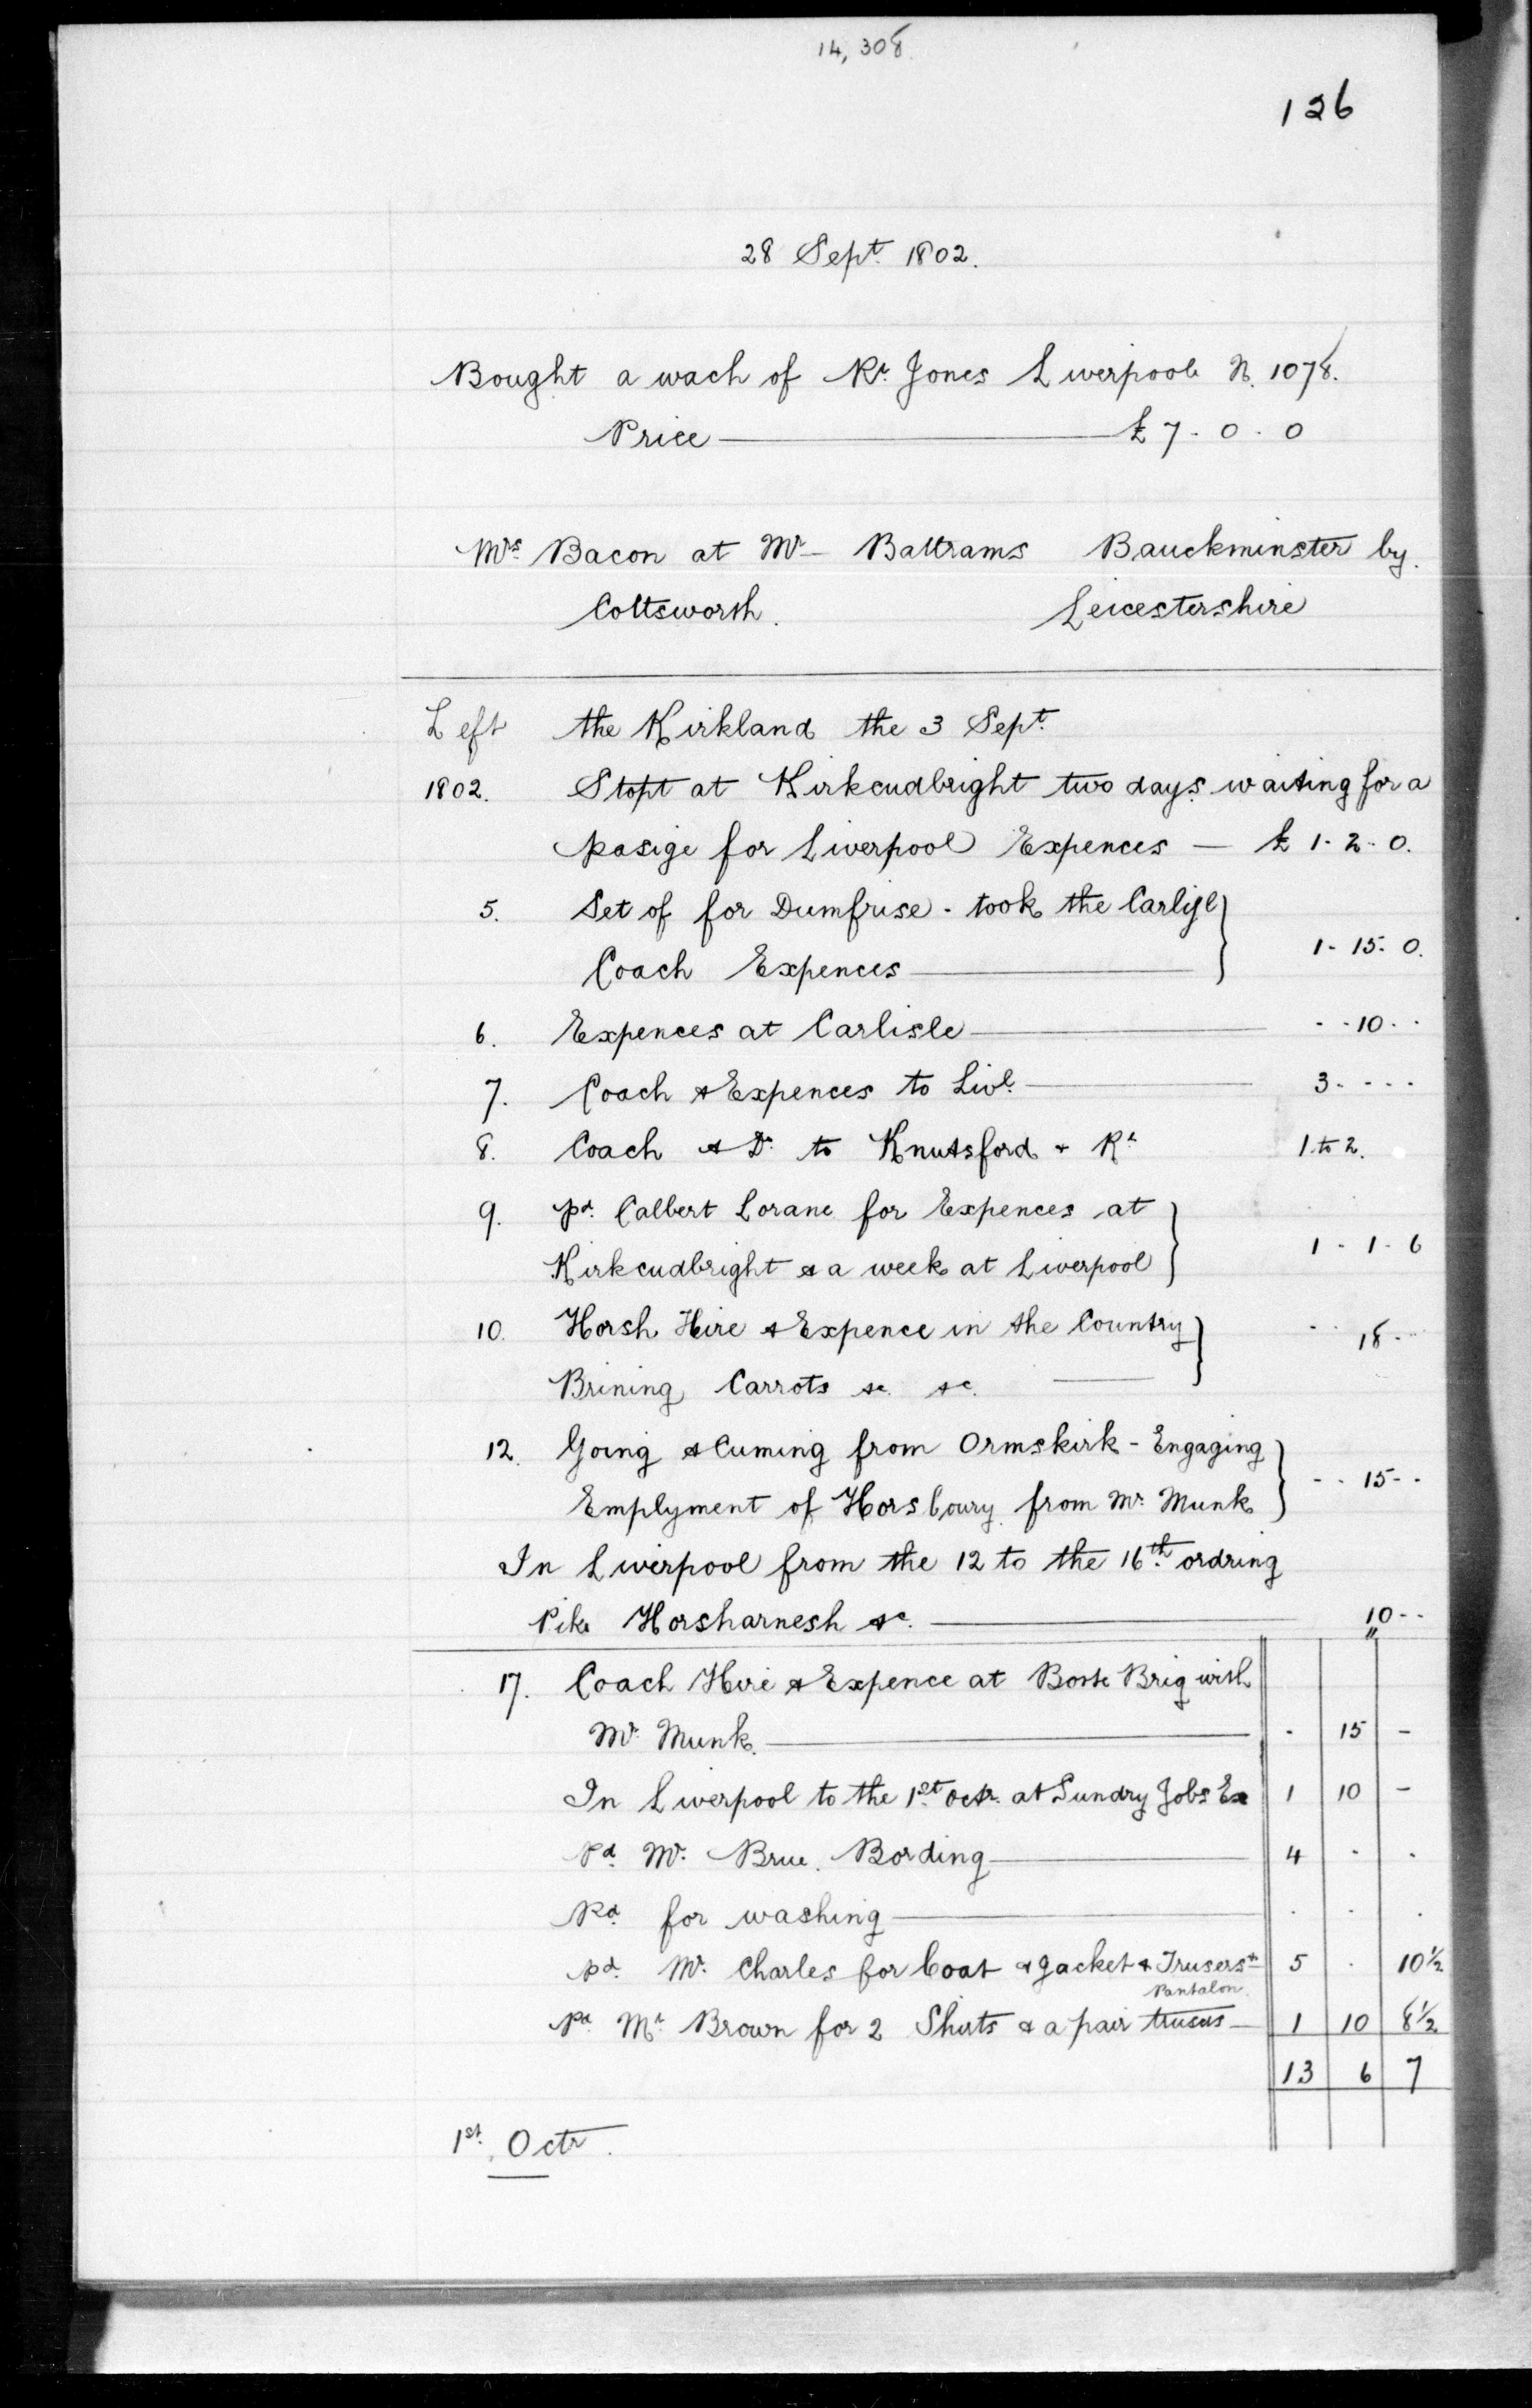 14,308.
126
28 Sept. 1802.
Bought a wach of Rt. Jones Liverpool N. 1078.
Price — £7 - 0 - 0
Mrs Bacon at Mr — Battrams Bauckminster by.
Coltsworth. Leicestershire
Left the Kirkland the 3 Sept.
1802. Stopt at Kirkcudbright two days waiting for a
pasige for Liverpool Expences — £ 1 - 2 - 0.
5. Set of for Dumfrise - took the Carlisl
Coach Expences — 1 - 15 - 0.
6. Expences at Carlisle — - - 10 - -
7. Coach & Expences to Livl. — 3 - - - -
8. Coach & Do. to Knutsford & Rt 1 to 2.
9. pd. Calbert Lorane for Expences at
Kirkcudbright & a week at Liverpool 1 - 1 - 6
10. Horsh Hire & Expence in the Country
Brining Carrots &c. &c. — - - 18 - -
12. Going & Cuming from Ormskirk - Engaging
Emplyment of Horsboury from Mr. Munk - - 15 - -
In Liverpool from the 12 to the 16th. ordring
Pike Horsharnesh &c. — 10 - -
"
17. Coach Hire & Expence at Boste Brig with
Mr. Munk. — - 15 -
In Liverpool to the 1st. octr. at Sundry Jobs Ex 1 10 -
Pd. Mr. Brue. Bording — 4 . .
Pd. for washing — . . .
pd. Mr. Charles for Coat & Jacket & Trusers & 5 . 10½
Pantalon.
Pd. Mr. Brown for 2 Shirts & a pair trusus — 1 10 8½
13 6 7
1st. Octr.